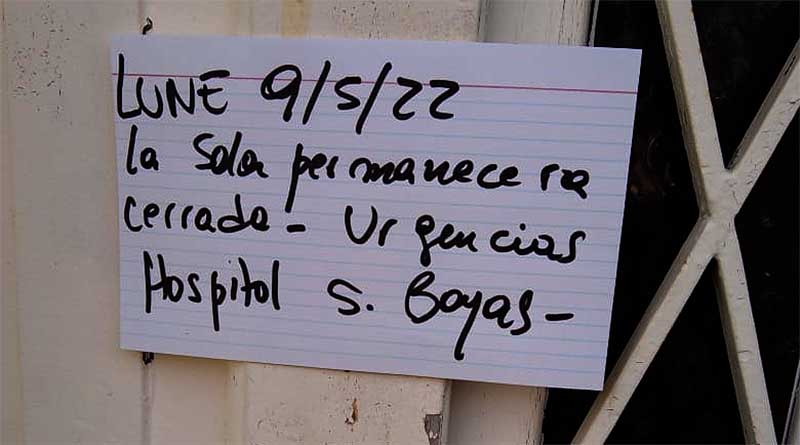 LUNE 9/5/22
la Sala permanecera
cerrada - Urgencias
Hospital S. Bayas -